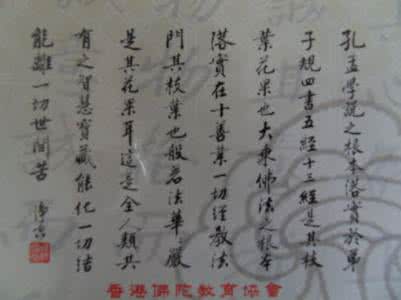 孔孟學說之根本落實於弟
子規四書五經十三經是其枝
葉花果也大乘佛法之根本
落實在十善業一切經教法
門其枝葉也般若法華〻嚴
是其花果耳這是全人類共
有之智慧寶藏能化一切結
能離一切世間苦 淨空
香港佛陀教育協會